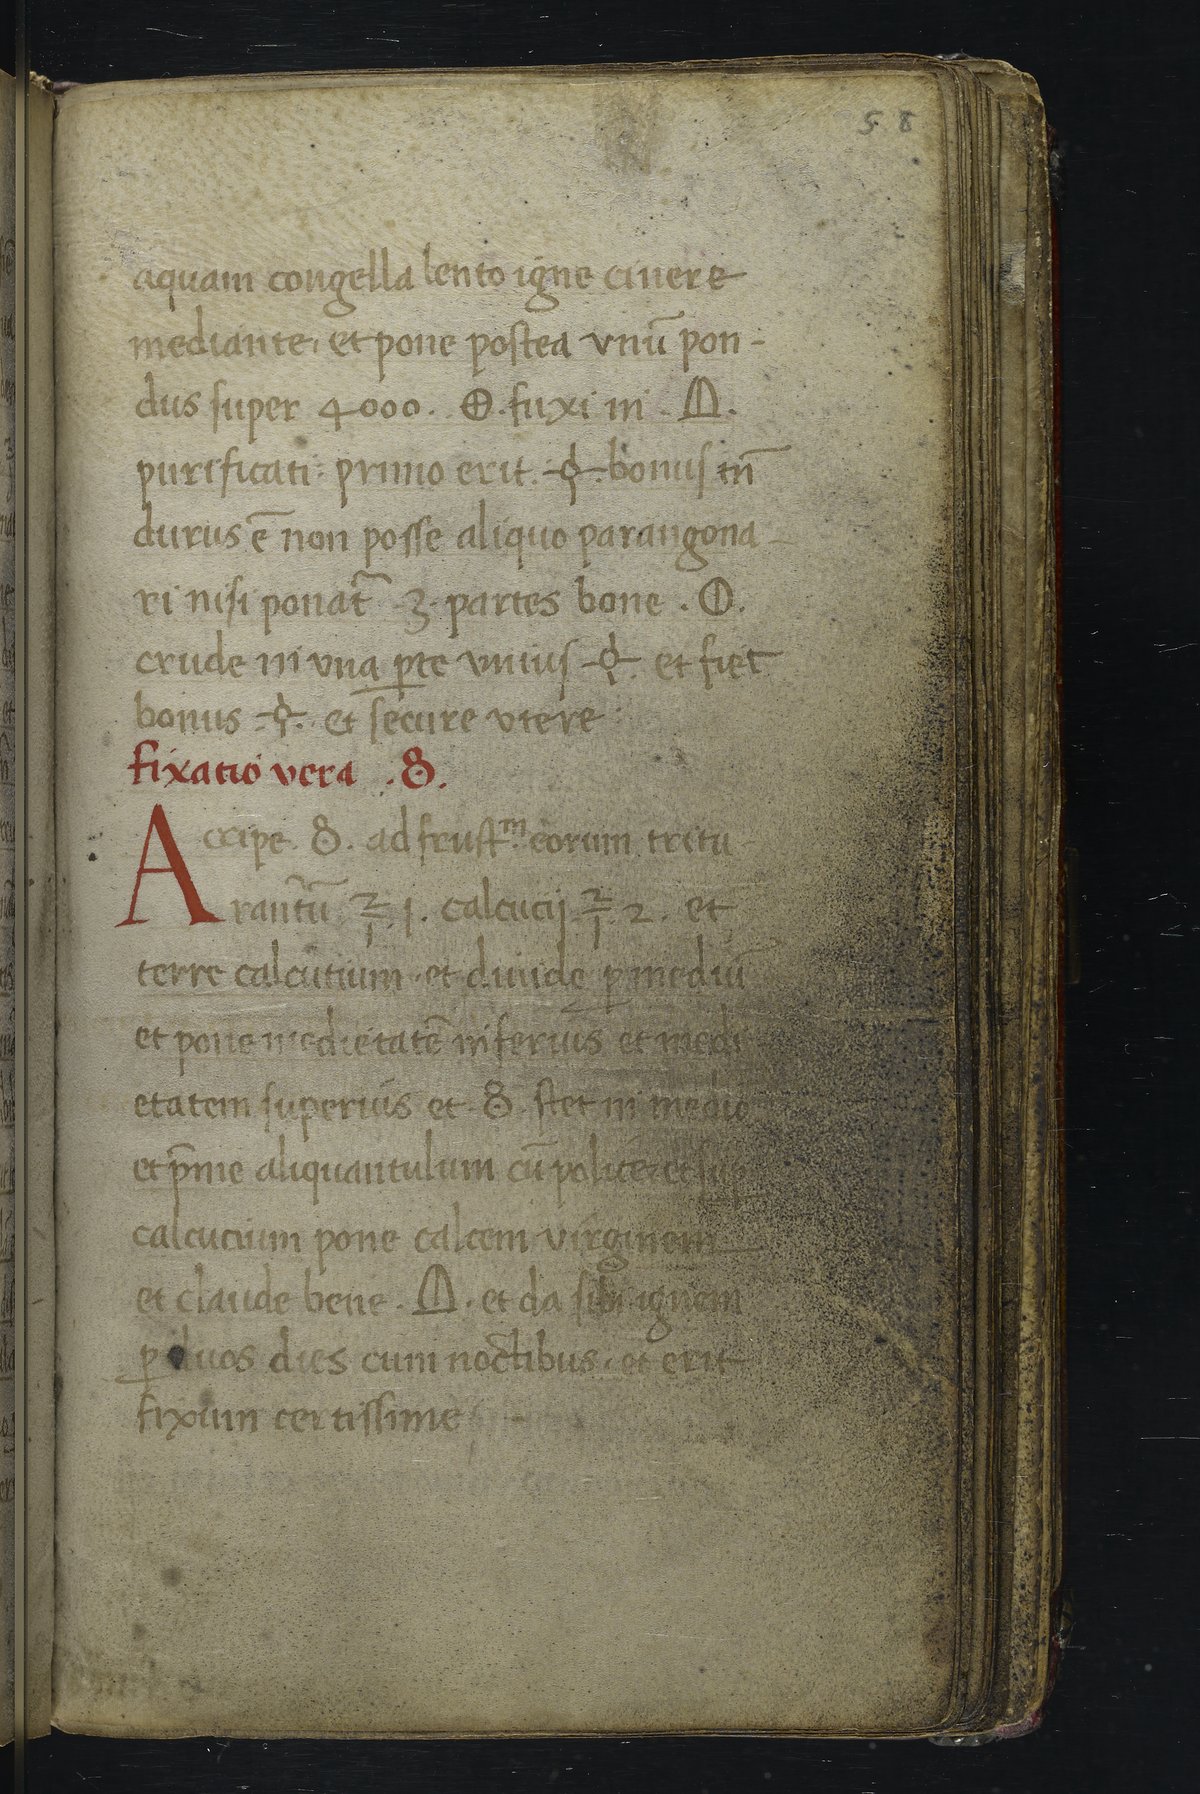 58
aquam congella lento igne cinere
mediante, et pone postea vnū pon-
dus super 4000. fuxi in
purificati: primo erit. bonus tñ
durus ē non posse aliquo parangona-
ri nisi ponat̃ 3. partes bone.
crude in vna ꝑte vnius et fiet
bonus et secure vtere
fixatio vera .
Accipe ad frust.ᵐ eorum tritu-
1. calcucij 2. et
terre calcutium et diuide ꝑ mediū
et pone medietatē inferius et medi-
etatem superius et stet in medio
et p̄me aliquantulum cū police, et sup
calcucium pone calcem virginem
et claude bene. et da sibi ignem
ꝑ duos dies cum noctibus, et erit
fixum certissime